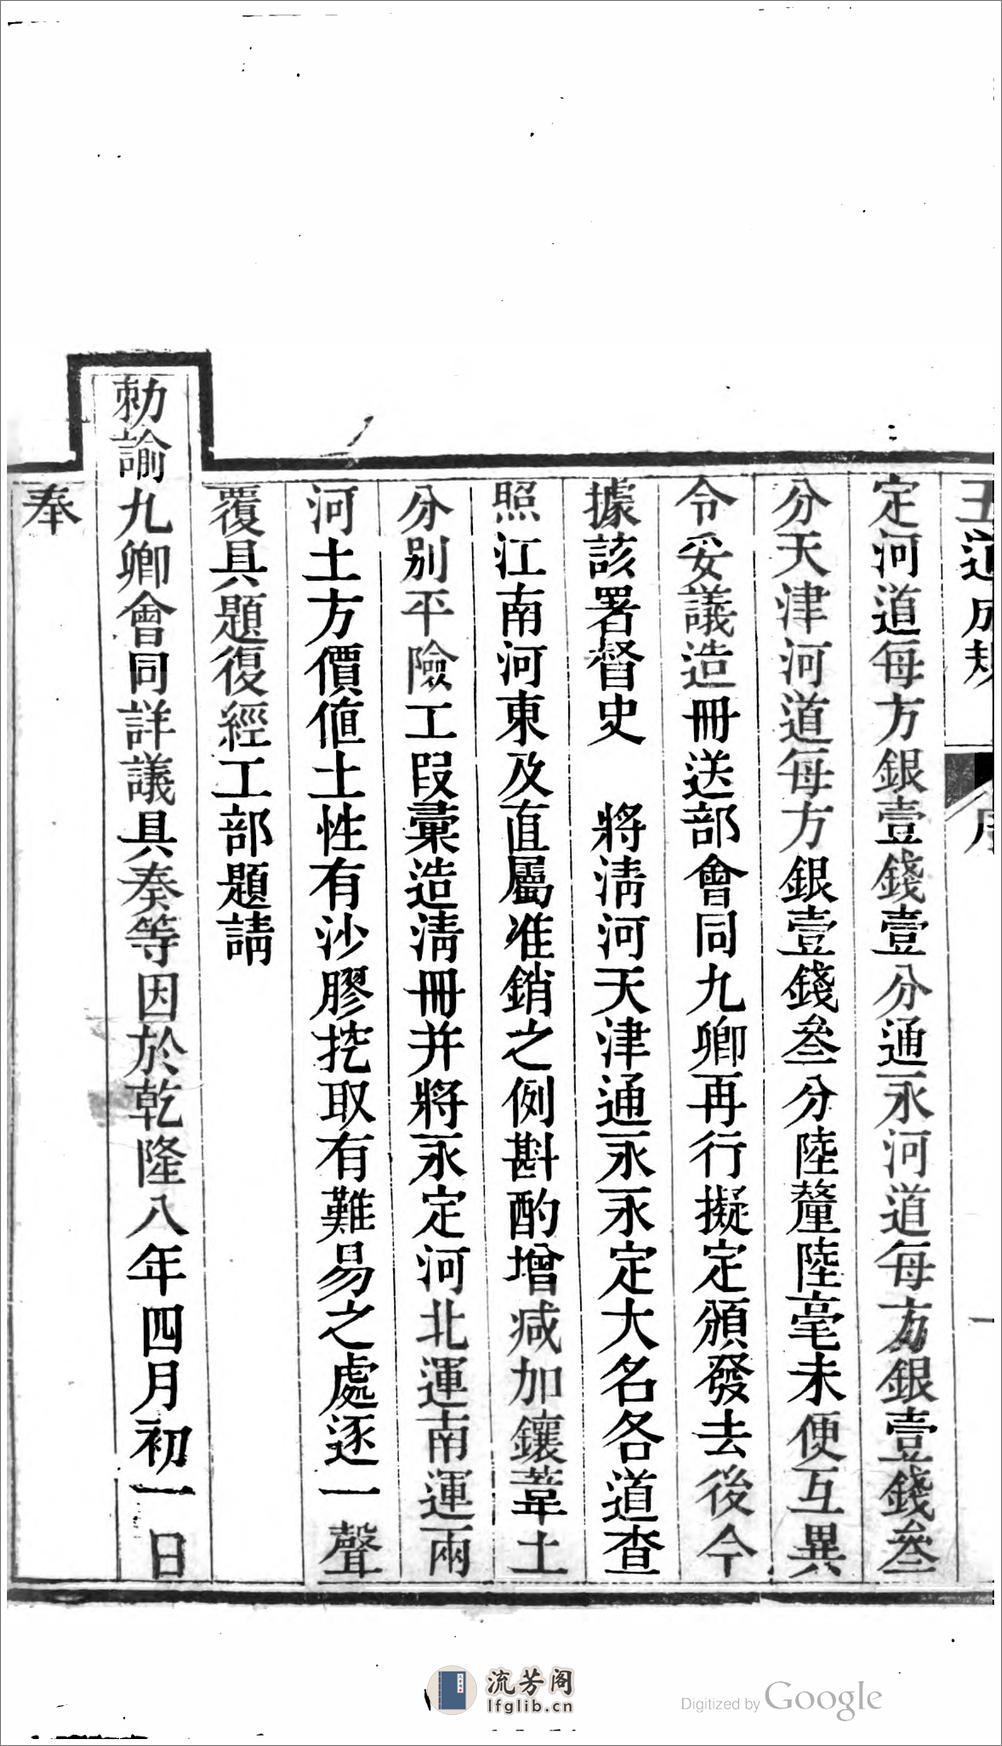 五道成規
序
一
定河道每方銀壹錢壹分通永河道每方銀壹錢叁
分天津河道每方銀壹錢叁分陸釐陸毫未便互異
令妥議造冊送部會同九卿再行擬定頒發去後今
據該署督史　將淸河天津通永永定大名各道查
照江南河東及直屬准銷之例斟酌增减加鑲葦土
分別平險工叚彙造淸冊并將永定河北運南運兩
河土方價値土性有沙膠挖取有難易之處逐一聲
覆具題復經工部題請
勅諭九卿會同詳議具奏等因於乾隆八年四月初一日
奉
流芳阁
lfglib.cn
Digitized by Google